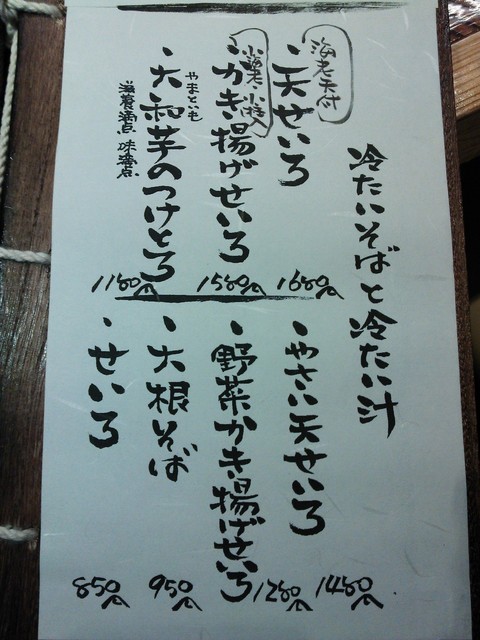 冷たいそばと冷たい汁
海老天付
・天せいろ
1680円
小海老・小柱入
・かき揚げせいろ
1580円
やまといも
・大和芋のつけとろ
滋養満点 味満点
1180円
・やさい天せいろ
1480円
・野菜かき揚げせいろ
1280円
・大根そば
950円
・せいろ
850円